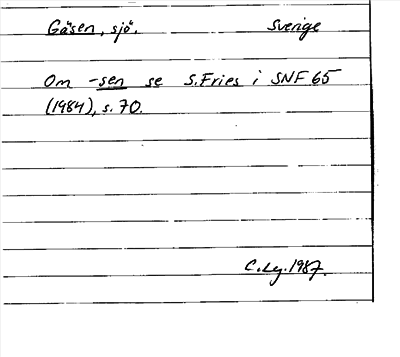 Gåsen, sjö. Sverige
Om -sen se S. Fries i SNF 65
(1984), s. 70.
C. Lg. 1987.